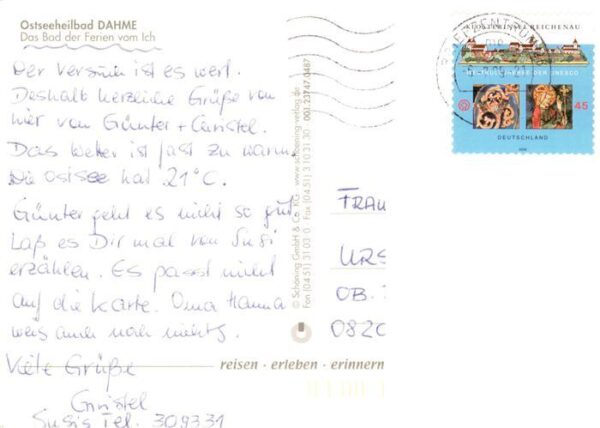 Ostseeheilbad DAHME
Das Bad der Ferien vom Ich
Der Versuch ist es wert.
Deshalb herzliche Grüße von
hier von Günter + Christel.
Das Wetter ist fast zu warm.
Die Ostsee hat 21°C.
Günter geht es nicht so gut
Laß es Dir mal von Susi
erzählen. Es passt nicht
auf die Karte. Oma Hanna
weis auch noch nichts.
Viele Grüße
Christel
Susis Tel. 309331
reisen · erleben · erinnern
© Schöning GmbH & Co. KG · www.schoening-verlag.de
Fon (04 51) 3 10 3 0 · Fax (04 51) 3 10 31 30
001 23747 0487
BRIEFZENTRUM
KLOSTERINSEL REICHENAU
WELTKULTURERBE DER UNESCO
45
DEUTSCHLAND
FRAU
URS
OB.
082